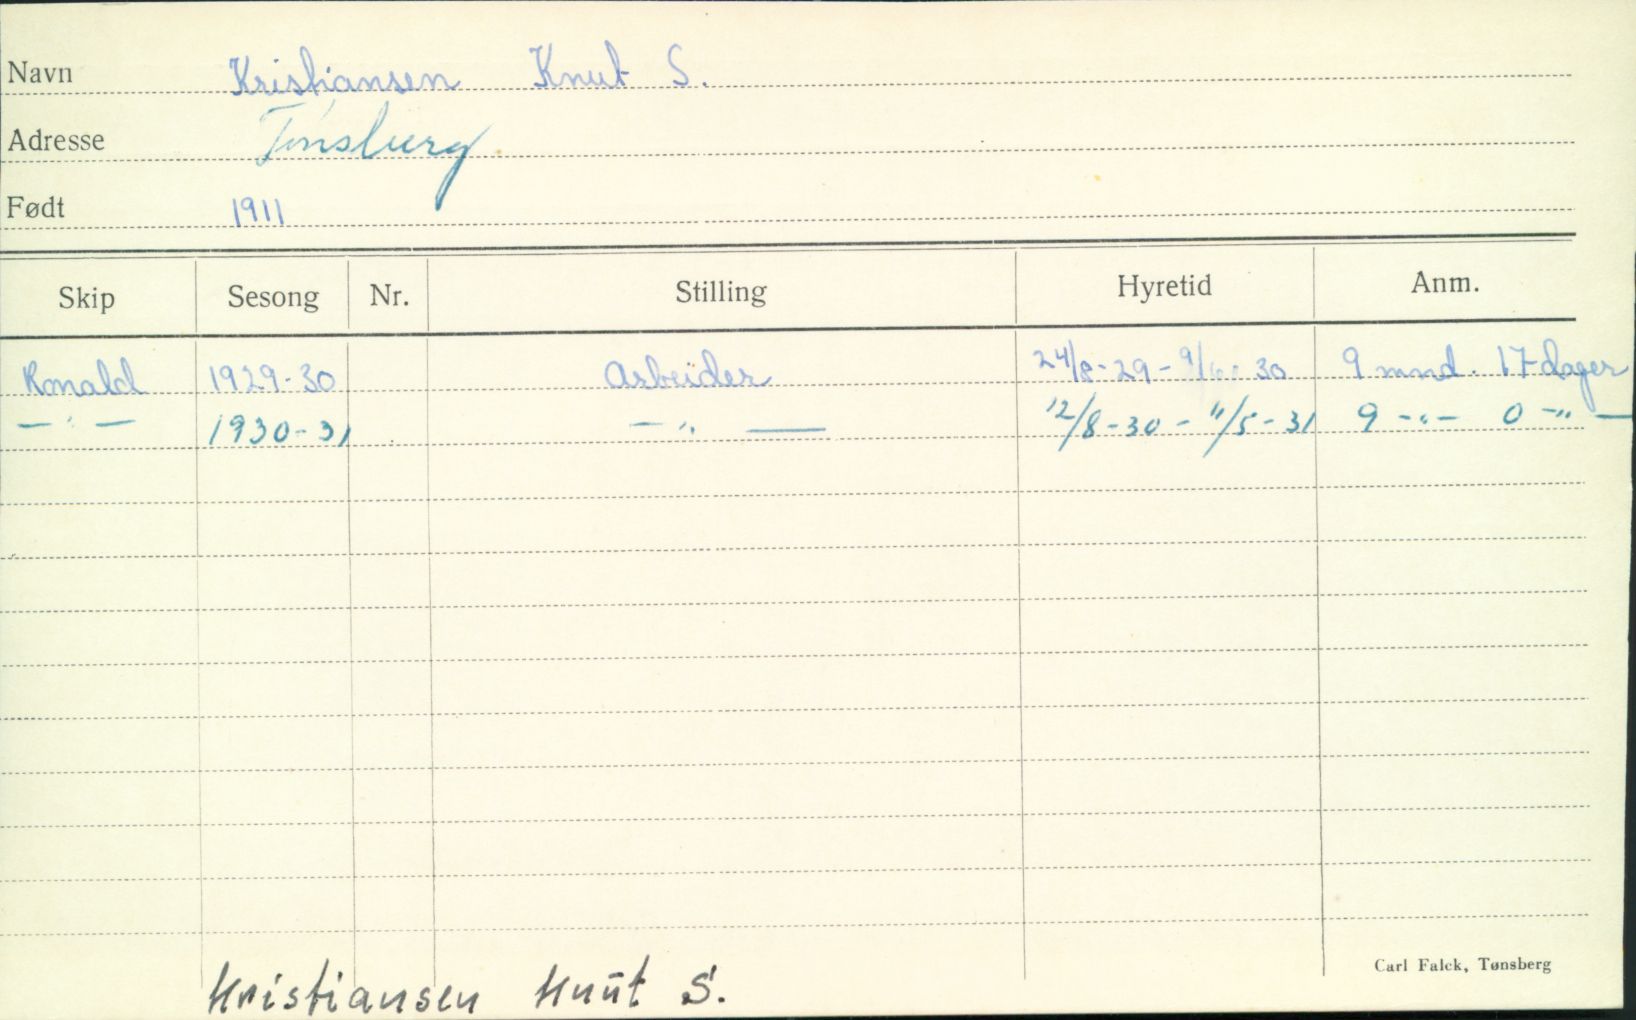 Navn Kristiansen Knut S.
Adresse Tønsberg
Født 1911
Skip Sesong Nr. Stilling Hyretid Anm.
Ronald 1929-30 Arbeider 24/8-29 - 9/6-30 9 mnd. 17 dager
— " — 1930-31 — " — 12/8-30 - 11/5-31 9 - " - 0 - " —
Carl Falck, Tønsberg
Kristiansen Knut S.